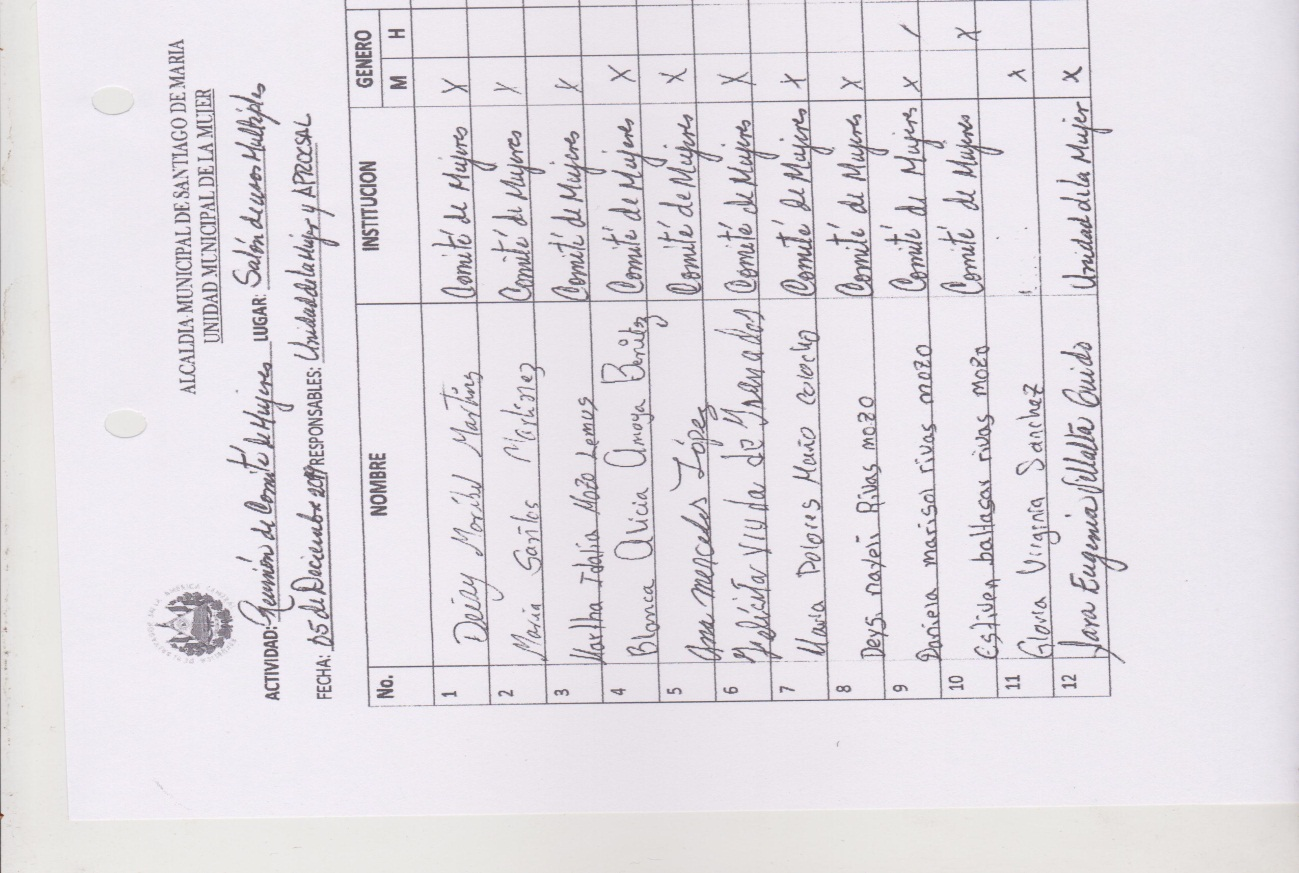 ALCALDIA MUNICIPAL DE SANTIAGO DE MARIA
UNIDAD MUNICIPAL DE LA MUJER
ACTIVIDAD: Reunión de Comité de Mujeres LUGAR: Salón de usos Multiples
FECHA: 05 de Diciembre 2019 RESPONSABLES: Unidad de la Mujer y APROCSAL
No. NOMBRE INSTITUCION GENERO
M H
1 Deisy Maribel Martinez Comité de Mujeres X
2 Maria Santos Martinez Comité de Mujeres X
3 Martha Idalia Mozo Lemus Comité de Mujeres X
4 Blanca Alicia Amaya Benitez Comité de Mujeres X
5 Ana Mercedes López Comité de Mujeres X
6 Felicita Viuda de Granados Comité de Mujeres X
7 Maria Dolores Colocho Comité de Mujeres X
8 Deysi nayeli Rivas mozo Comité de Mujeres X
9 Daniela marisol rivas mozo Comité de Mujeres X
10 Estiven baltasar rivas mozo Comité de Mujeres X
11 Gloria Virginia Sanchez X
12 Eugenia Villalta Guido Unidad de la Mujer X